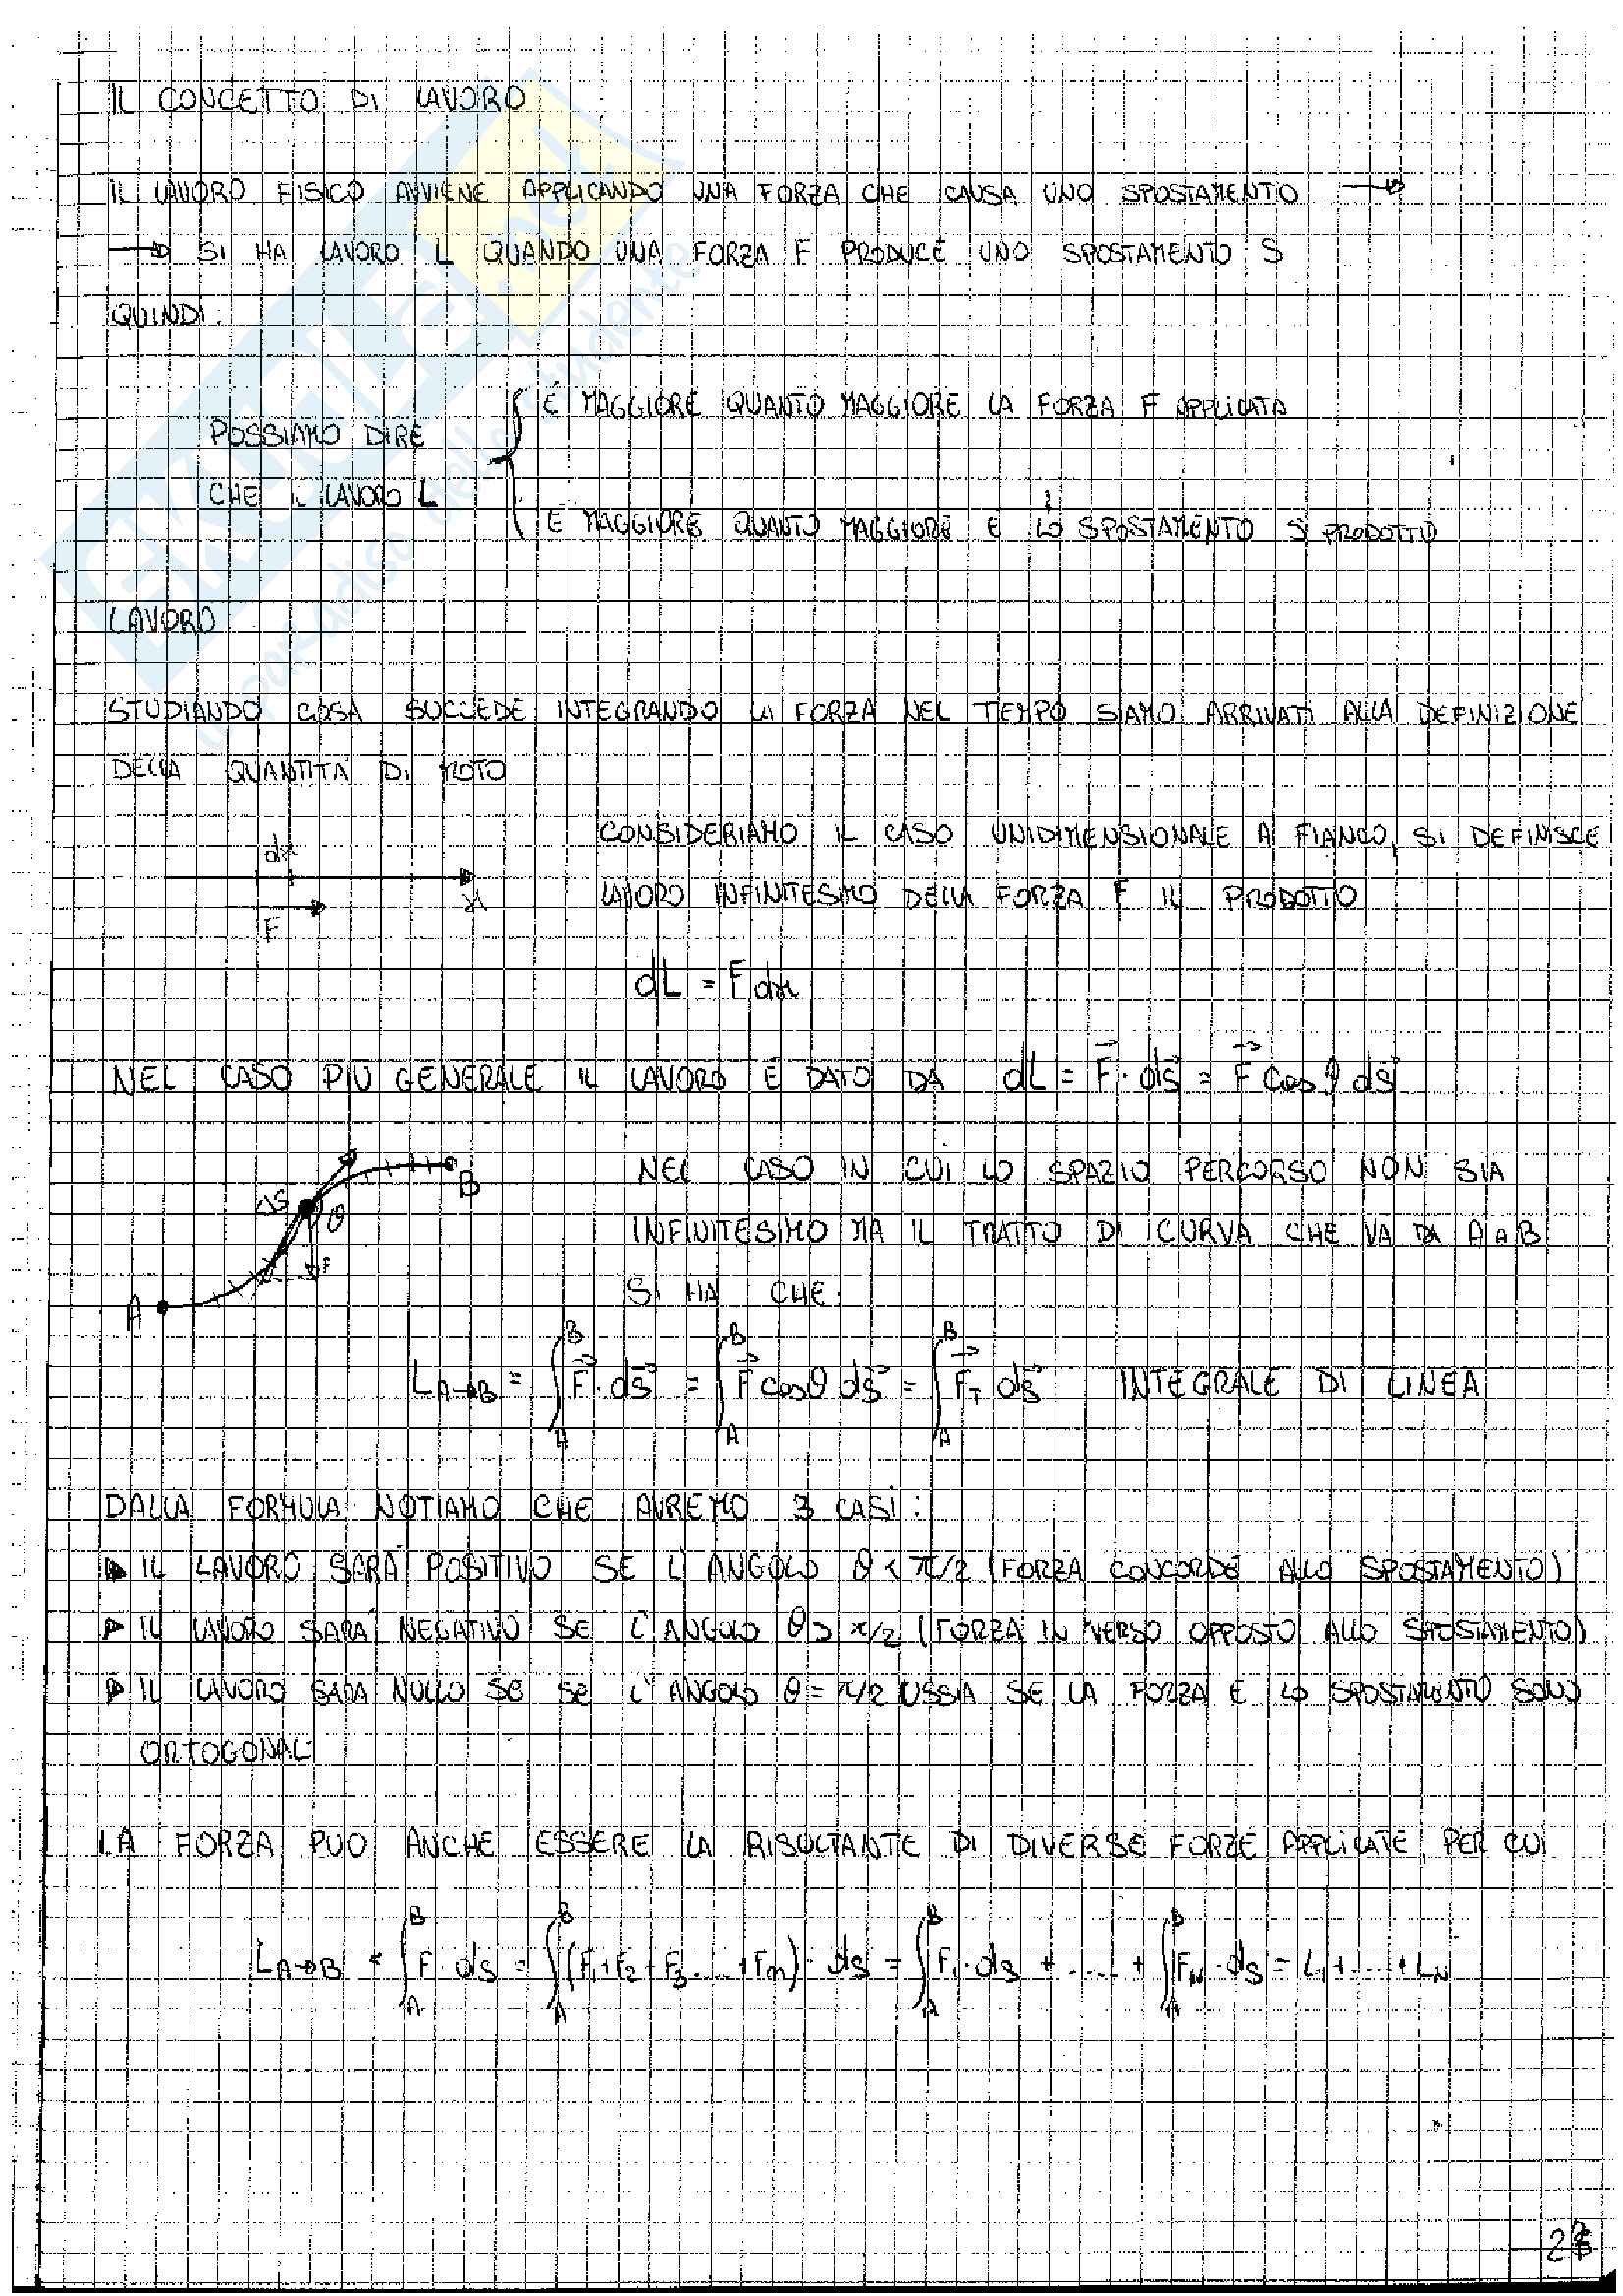 IL CONCETTO DI LAVORO
IL LAVORO FISICO AVVIENE APPLICANDO UNA FORZA CHE CAUSA UNO SPOSTAMENTO →
→ SI HA LAVORO L QUANDO UNA FORZA F PRODUCE UNO SPOSTAMENTO S
QUINDI:
POSSIAMO DIRE
CHE IL LAVORO L
È MAGGIORE QUANTO MAGGIORE LA FORZA F APPLICATA
E MAGGIORE QUANTO MAGGIORE È LO SPOSTAMENTO S PRODOTTO
LAVORO
STUDIANDO COSA SUCCEDE INTEGRANDO LA FORZA NEL TEMPO SIAMO ARRIVATI ALLA DEFINIZIONE
DELLA QUANTITÀ DI MOTO
dx
x
F
CONSIDERIAMO IL CASO UNIDIMENSIONALE A FIANCO, SI DEFINISCE
LAVORO INFINITESIMO DELLA FORZA F IL PRODOTTO
dL = F dx
NEL CASO PIÙ GENERALE IL LAVORO È DATO DA dL = F⃗ · ds⃗ = F⃗ cosθ ds⃗
ΔS
θ
F
A
B
NEL CASO IN CUI LO SPAZIO PERCORSO NON SIA
INFINITESIMO MA IL TRATTO DI CURVA CHE VA DA A A B
SI HA CHE:
L_{A→B} = ∫_A^B F⃗ · ds⃗ = ∫_A^B F⃗ cosθ ds⃗ = ∫_A^B F⃗_T ds⃗ INTEGRALE DI LINEA
DALLA FORMULA NOTIAMO CHE AVREMO 3 CASI:
▶ IL LAVORO SARÀ POSITIVO SE L'ANGOLO θ < π/2 (FORZA CONCORDE ALLO SPOSTAMENTO)
▶ IL LAVORO SARÀ NEGATIVO SE L'ANGOLO θ > π/2 (FORZA IN VERSO OPPOSTO ALLO SPOSTAMENTO)
▶ IL LAVORO SARÀ NULLO SE SE L'ANGOLO θ = π/2 OSSIA SE LA FORZA E LO SPOSTAMENTO SONO
ORTOGONALI
LA FORZA PUÒ ANCHE ESSERE LA RISULTANTE DI DIVERSE FORZE APPLICATE, PER CUI
L_{A→B} = ∫_A^B F · ds = ∫_A^B (F₁+F₂+F₃....+Fₙ) · ds = ∫_A^B F₁ · ds + .... + ∫_A^B F_N · ds = L₁+....+L_N